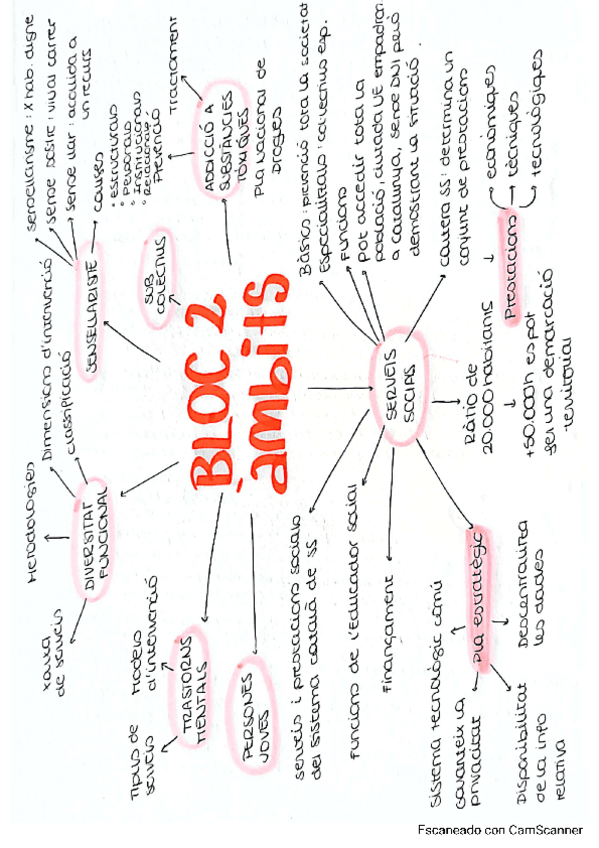 BLOC 2
àmbits
SENSELLARISTE
sensellarisme : X hab. digne
sense sostre : viu al carrer
sense llar : acollida a
un recurs
causes
• Estructurals
• Personals
• Institucionals
• Relacionals
SUB
COL·LECTIUS
ADDICCIÓ A
SUBSTÀNCIES
TÒXIQUES
Tractament
Prevenció
Pla Nacional de
Drogues
DIVERSITAT
FUNCIONAL
Xarxa
de serveis
Metodologies
Dimensions d'intervenció
classificació
TRASTORNS
MENTALS
Tipus de
serveis
Models
d'intervenció
PERSONES
JOVES
SERVEIS
SOCIALS
Bàsics : prevenció tota la societat
Especialitzats : col·lectius esp.
Funcions
Pot accedir tota la
població, ciutadà UE empadron
a Catalunya, sense DNI però
demostrant la situació.
cartera SS : determina un
conjunt de prestacions
Prestacions
econòmiques
tècniques
tecnològiques
Ràtio de
20.000 habitants
+50.000h es pot
ser una demarcació
territorial
serveis i prestacions socials
del sistema català de SS
Funcions de l'Educador social
Finançament
Pla estratègic
Sistema tecnològic comú
Garanteix la
privacitat
Disponibilitat
de la info
relativa
Descentralitza
les dades
Escaneado con CamScanner